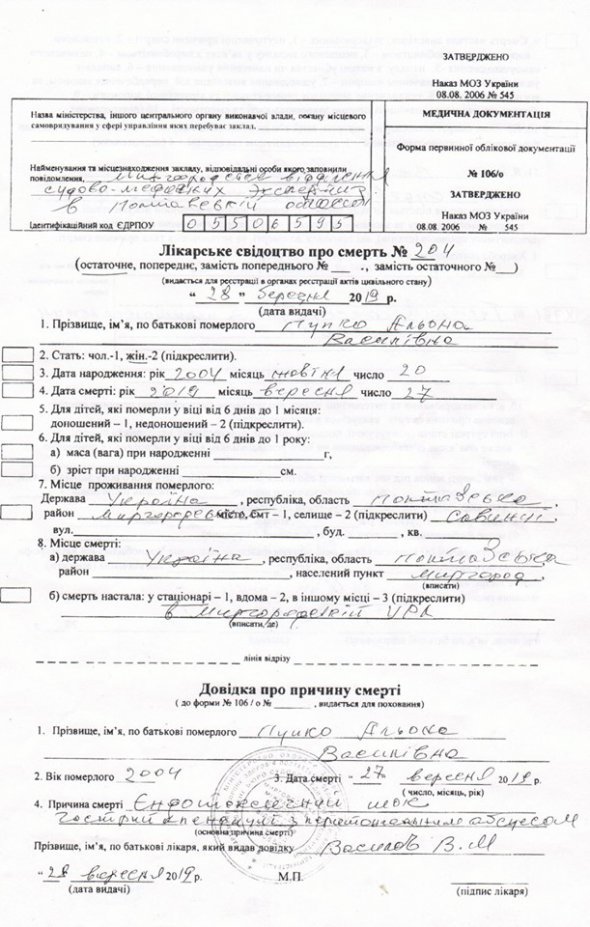 ЗАТВЕРДЖЕНО
Наказ МОЗ України
08.08. 2006 № 545
Назва міністерства, іншого центрального органу виконавчої влади, органу місцевого
самоврядування у сфері управління яких перебуває заклад.
Найменування та місцезнаходження закладу, відповідальні особи якого заповнили
повідомлення. Миргородське відділення
судово-медичних экспертиз
в Полтавській області
Ідентифікаційний код ЄДРПОУ 0 5 5 0 6 5 9 5
МЕДИЧНА ДОКУМЕНТАЦІЯ
Форма первинної облікової документації
№ 106/о
ЗАТВЕРДЖЕНО
Наказ МОЗ України
08.08. 2006 № 545
Лікарське свідоцтво про смерть № 204
(остаточне, попереднє, замість попереднього № ___ ., замість остаточного №___)
(видається для реєстрації в органах реєстрації актів цивільного стану)
“ 28 ” березня 2019 р.
(дата видачі)
1. Прізвище, ім’я, по батькові померлого Пупко Альона
Василівна
2. Стать: чол.-1, жін.-2 (підкреслити).
3. Дата народження: рік 2004 місяць жовтня число 20
4. Дата смерті: рік 2019 місяць вересня число 27
5. Для дітей, які померли у віці від 6 днів до 1 місяця:
доношений – 1, недоношений – 2 (підкреслити).
6. Для дітей, які померли у віці від 6 днів до 1 року:
а) маса (вага) при народженні г,
б) зріст при народженні см.
7. Місце проживання померлого:
Держава Україна, республіка, область Полтавська,
район місто, смт – 1, селище – 2 (підкреслити) Савинці,
вул. , буд. , кв.
8. Місце смерті:
а) держава Україна, республіка, область Полтавська
район , населений пункт Миргород,
(вписати)
б) смерть настала: у стаціонарі – 1, вдома – 2, в іншому місці – 3 (підкреслити)
в Миргородській ЦРЛ
(вписати, де)
лінія відрізу
Довідка про причину смерті
( до форми № 106 / о № , видається для поховання)
1. Прізвище, ім’я, по батькові померлого Пупко Альона
Василівна
2. Вік померлого 2004 3. Дата смерті “ 27 вересня 2019 р.
( число, місяць, рік)
4. Причина смерті Ендотоксичний шок
Гострий апендицит з перитонеальним абсцесом
(основна причина смерті)
Прізвище, ім’я, по батькові лікаря, який видав довідку Василов В.М
“ 28 вересня 2019 р. М.П.
(дата видачі) (підпис лікаря)